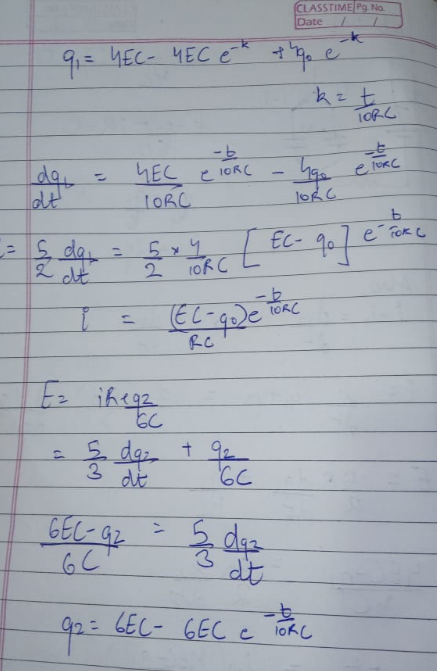 CLASSTIME Pg. No.
Date / /
q₁ = 4EC - 4EC e^{-k} + 4q₀ e^{-k}
k = t/10RC
dq₁/dt = 4EC/10RC e^{-t/10RC} - 4q₀/10RC e^{-t/10RC}
i = 5/2 dq₁/dt = 5/2 × 4/10RC [EC - q₀] e^{-t/10RC}
i = (EC - q₀)e^{-t/10RC}/RC
E = iR + q₂/6C
= 5/3 dq₂/dt + q₂/6C
6EC - q₂/6C = 5/3 dq₂/dt
q₂ = 6EC - 6EC e^{-t/10RC}